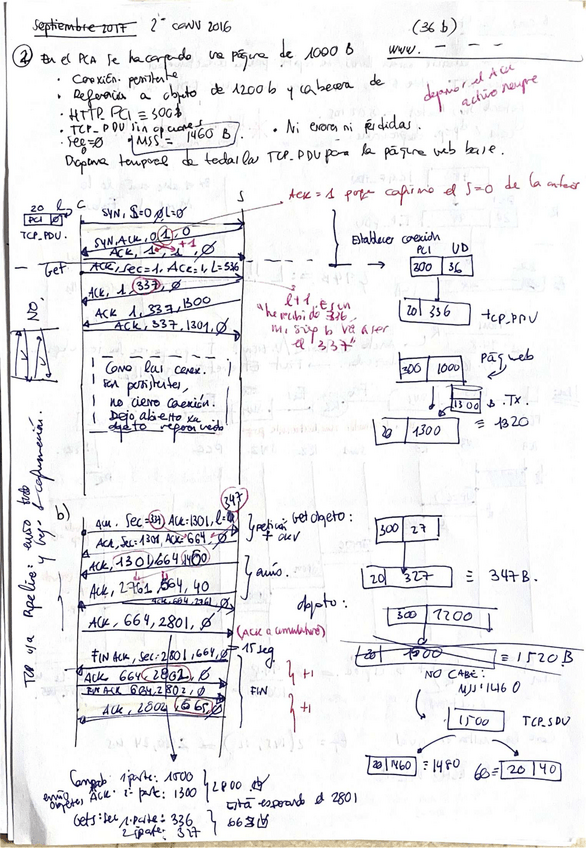 Septiembre 2017 2ª conv 2016 (36 b)
② En el PCA se ha cargado una página de 1000 B www. - - -
· Conexión persistente
· Referencia a objeto de 1200 b y cabecera de
· HTTP_PCI ≡ 300b
· TCP_PDU sin opciones
· Sec=0 · MSS = 1460 B. · Ni errores ni pérdidas.
dejamos el ACK
activo siempre
Diagrama temporal de todas las TCP_PDU para la página web base.
ACK = 1 porque confirmo el S=0 de la anterior
20
PCI Ø
TCP_PDU.
C S
SYN, S=0, L=0
SYN, ACK, 0, 1, 0
+1
ACK, 1, 1, Ø
Establecer conexión
Get
ACK, Sec=1, ACK=1, L=336
ACK, 1, 337, Ø
ACK, 1, 337, 1300
ACK, 337, 1301, Ø
NO.
l+1, es un
he recibido 336,
mi sig b va a ser
el "337"
PCI UD
300 36
20 336 TCP_PDU
Pág web
300 1000
1300 b. Tx.
20 1300 ≡ 1320
Como las conex.
son persistentes,
no cierro conexión.
Dejo abierto xa
objeto referenciado
TCP usa pipeline: envío todo
y luego la confirmación.
b)
347
ACK, Sec=337, ACK=1301, L=
ACK, Sec=1301, ACK=664, Ø
petición
+ ACK
Get objeto:
300 27
20 327 ≡ 347 B.
ACK, 1301, 664, 1460
ACK, 2761, 664, 40
envío.
ACK, 664, 2761, Ø
ACK, 664, 2801, Ø
(ACK acumulativo)
objeto:
300 1200
20 1500 ≡ 1520 B
NO CABE:
MSS=1460
1500 TCP_SDU
20 1460 ≡ 1480
60 ≡ 20 40
15 seg
FIN ACK, Sec=2801, 664, Ø
ACK 664, 2802, Ø
FIN ACK 664, 2802, Ø
ACK, 2802, 665, Ø
FIN
+1
+1
Comprob 1ª parte: 1500
ACK: 2ª parte: 1300
2800
está esperando el 2801
Gets: 1ª parte: 336
2ª parte: 327
663